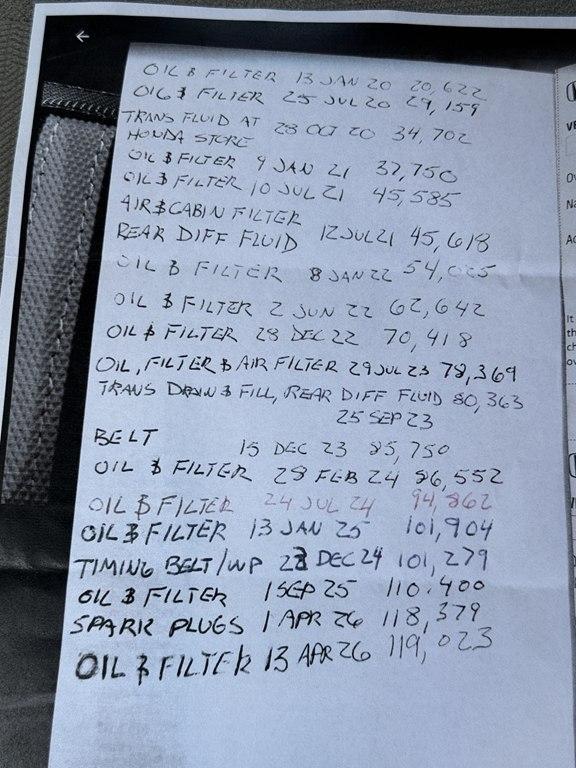 OIL & FILTER 13 JAN 20 20,622
OIL & FILTER 25 JUL 20 29,159
TRANS FLUID AT 28 OCT 20 34,702
HONDA STORE
OIL & FILTER 9 JAN 21 37,750
OIL & FILTER 10 JUL 21 45,585
AIR & CABIN FILTER
REAR DIFF FLUID 12 JUL 21 45,618
OIL & FILTER 8 JAN 22 54,025
OIL & FILTER 2 JUN 22 62,642
OIL & FILTER 28 DEC 22 70,418
OIL, FILTER & AIR FILTER 29 JUL 23 78,369
TRANS DRAIN & FILL, REAR DIFF FLUID 80,363
25 SEP 23
BELT 15 DEC 23 85,750
OIL & FILTER 28 FEB 24 86,552
OIL & FILTER 24 JUL 24 94,862
OIL & FILTER 13 JAN 25 101,904
TIMING BELT/WP 23 DEC 24 101,279
OIL & FILTER 1 SEP 25 110,400
SPARK PLUGS 1 APR 26 118,379
OIL & FILTER 13 APR 26 119,023